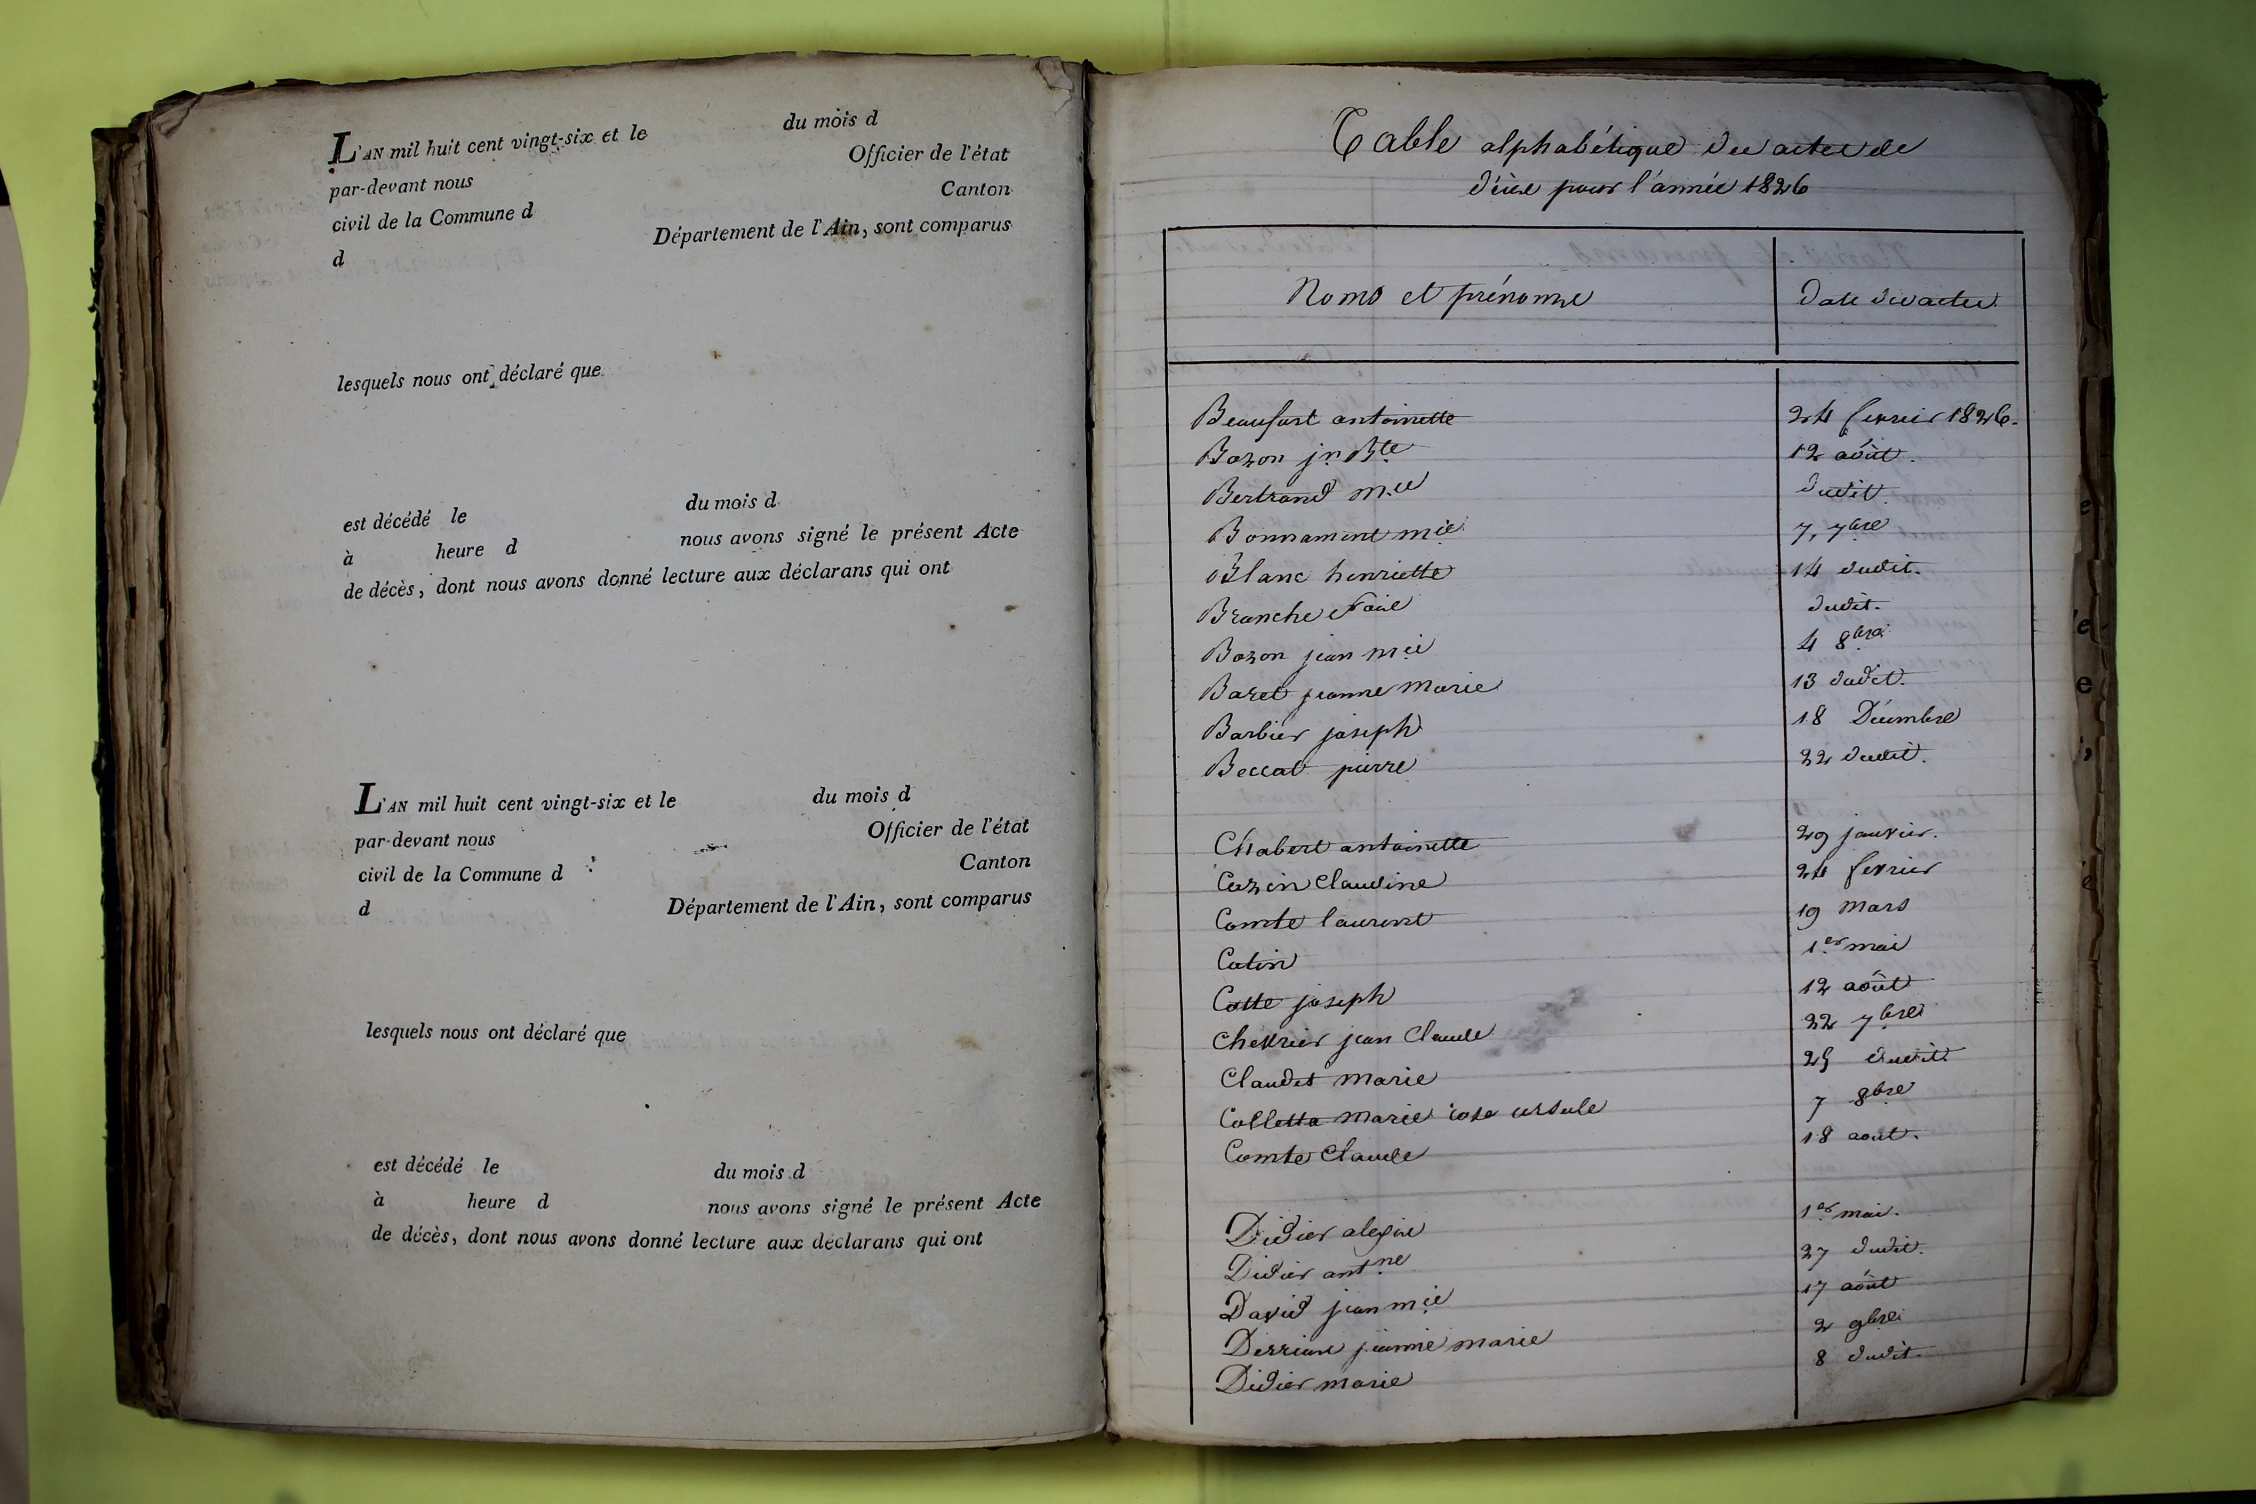 L'AN mil huit cent vingt-six et le du mois d
par-devant nous Officier de l'état
civil de la Commune d Canton
d Département de l'Ain, sont comparus
lesquels nous ont déclaré que
est décédé le du mois d
à heure d nous avons signé le présent Acte
de décès, dont nous avons donné lecture aux déclarans qui ont
L'AN mil huit cent vingt-six et le du mois d
par-devant nous Officier de l'état
civil de la Commune d Canton
d Département de l'Ain, sont comparus
lesquels nous ont déclaré que
est décédé le du mois d
à heure d nous avons signé le présent Acte
de décès, dont nous avons donné lecture aux déclarans qui ont
Table alphabétique des actes de
décès pour l'année 1826
Noms et prénoms Date des actes
Beaufort antoinette 24 fevrier 1826.
Bozon jn Bte 12 août.
Bertrand mie dudit.
Bonnament mie 7, 7bre
Blanc henriette 14 dudit.
Branche dudit.
Bozon jean mie 4 8bre
Baret jeanne Marie 13 dudit.
Barbier joseph 18 Décembre
Beccat pierre 22 dudit.
Chabert antoinette 29 janvier.
Cozin Claudine 24 fevrier
Comte laurent 19 Mars
Cotin 1er mai
Cotte joseph 12 août
Chevrier jean Claude 22 7bre
Claudet marie 25 dudit.
Colletta Marie rose ursule 7 8bre
Comte Claude 18 aout.
Didier alexis 1er mai.
Didier antne 27 dudit.
David jean mie 17 août
jeanne marie 2 9bre
Didier marie 8 dudit.